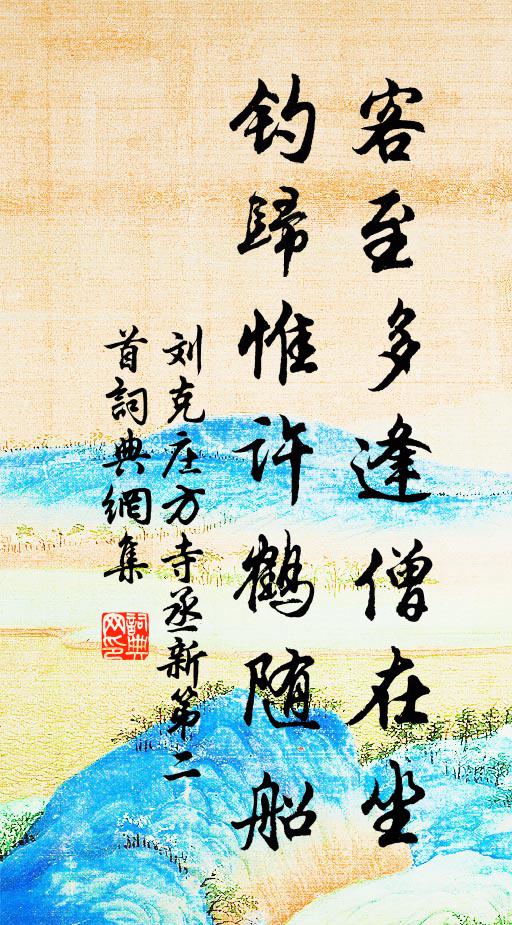 客至多逢僧在坐
钓歸惟许鶴随船
刘克庄方寺丞新第二
首詞典網集
詞典网印